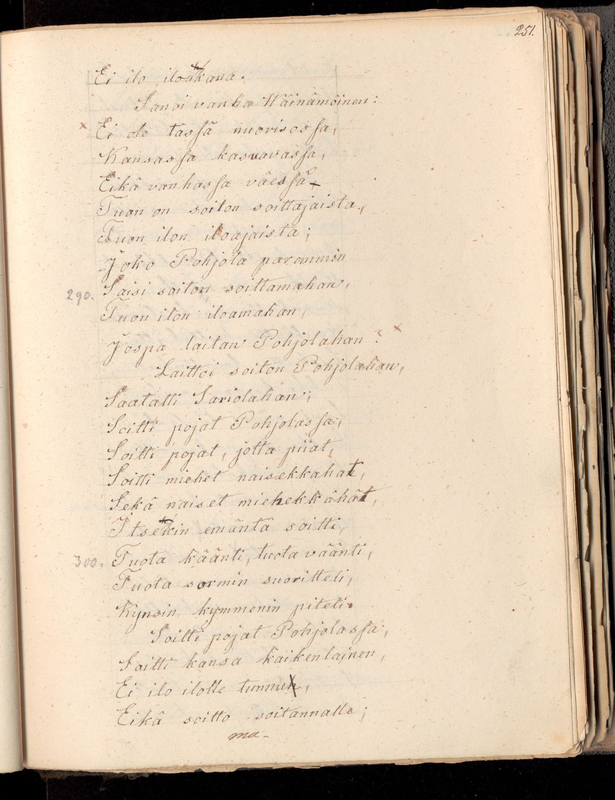 251.
Ei ilo iloakana.
Sanoi vanha Wäinämöinen:
Ei ole tässä nuorisossa,
Kansassa kasuavassa,
Eikä vanhassa väessä
Tuon on soiton soittajaista,
Tuon ilon iloajaista;
Joko Pohjola paremmin
290. Saisi soiton soittamahan,
Tuon ilon iloamahan,
Jospa laitan Pohjolahan?
Laittoi soiton Pohjolahan,
Saatatti Sariolahan;
Soitti pojat Pohjolassa,
Soitti pojat, jotta piiat,
Soitti miehet naisekkahat,
Sekä naiset miehekkähät,
Itsekin emäntä soitti,
300. Tuota käänti, tuota väänti,
Tuota sormin suoritteli,
Kynsin kymmenin piteli.
Soitti pojat Pohjolassa,
Soitti kansa kaikenlajuen,
Ei ilo ilolle tunnu,
Eikä soitto soitannalle;
ma-